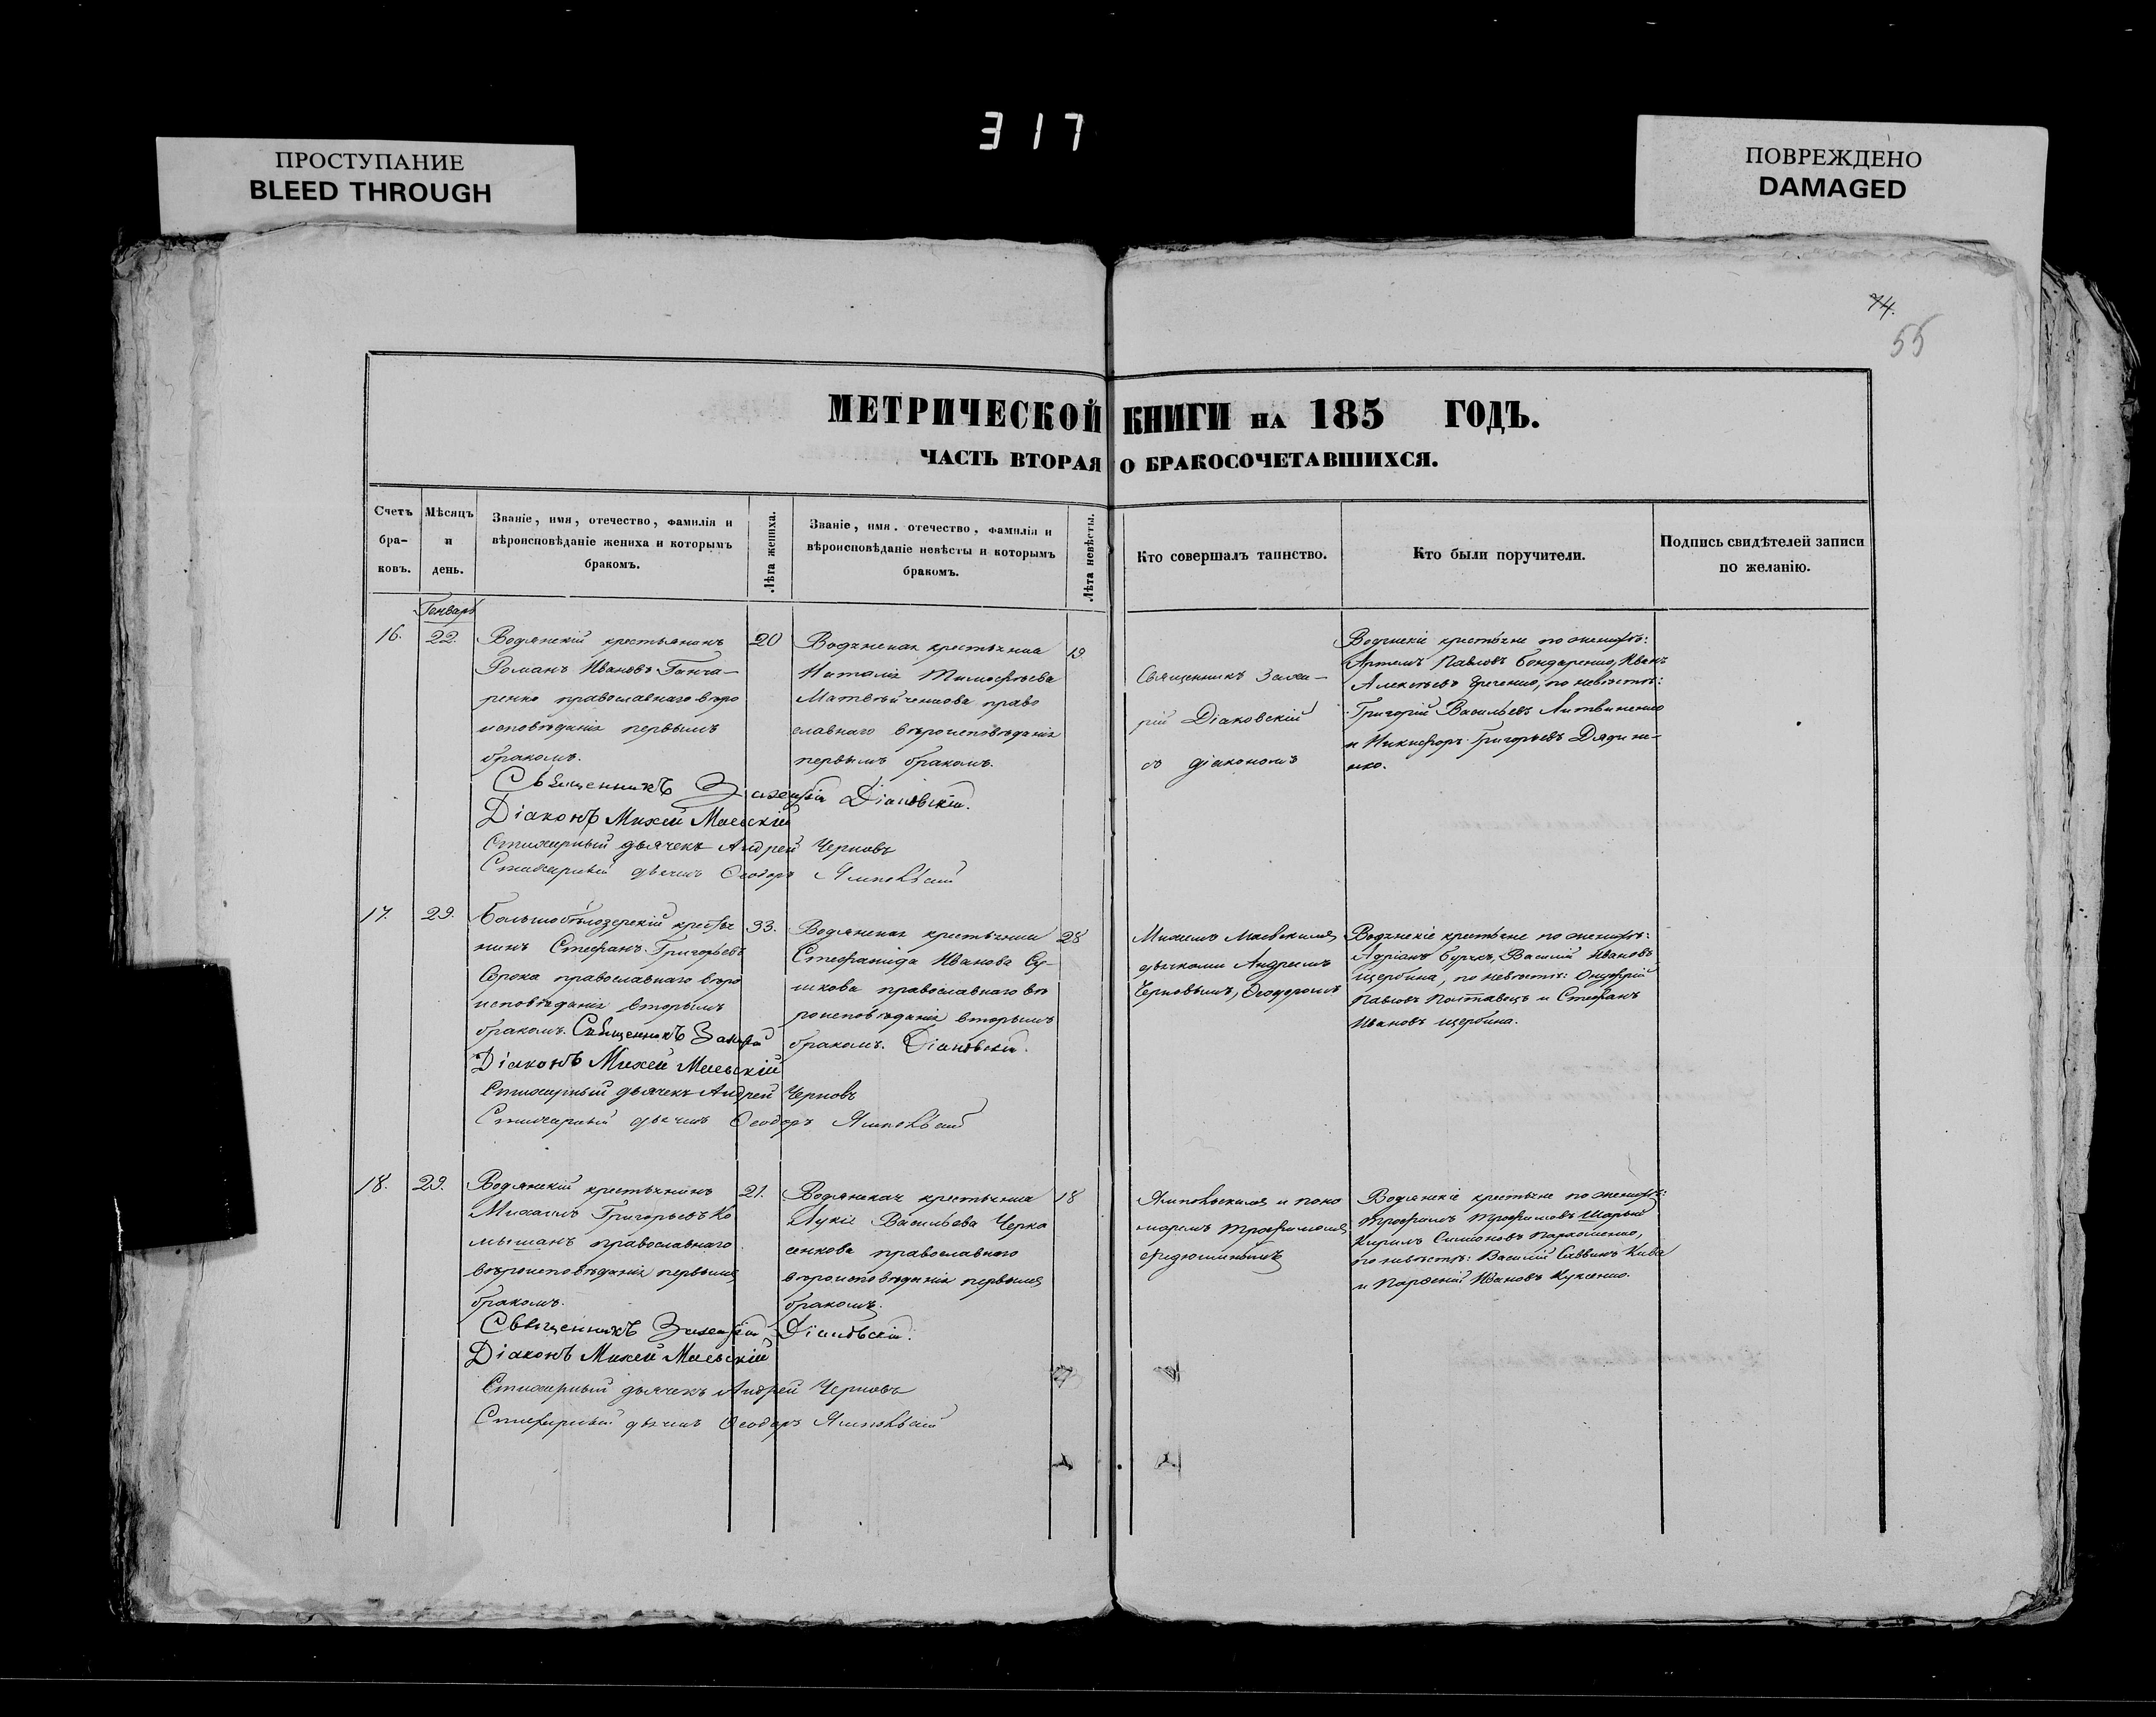 317
ПРОСТУПАНИЕ
BLEED THROUGH
ПОВРЕЖДЕНО
DAMAGED
74.
55
МЕТРИЧЕСКОЙ КНИГИ НА 185 ГОДЪ.
ЧАСТЬ ВТОРАЯ О БРАКОСОЧЕТАВШИХСЯ.
Счетъ
бра-
ковъ.
Мѣсяцъ
и
день.
Званіе, имя, отечество, фамилія и
вѣроисповѣданіе жениха и которымъ
бракомъ.
Лѣта жениха.
Званіе, имя, отечество, фамилія и
вѣроисповѣданіе невѣсты и которымъ
бракомъ.
Лѣта невѣсты.
Кто совершалъ таинство.
Кто были поручители.
Подпись свидѣтелей записи
по желанію.
Генварь
16.
22.
Водянскій крестьянинъ
Романъ Ивановъ Ганча-
ренко православнаго вѣро
исповѣданія первымъ
бракомъ.
20
Водянская крестьянка
Наталія Тимофѣева
Матвѣйченкова право
славнаго вѣроисповѣданія
первымъ бракомъ.
19
Священникъ Заха-
рій Діаковскій
съ діакономъ
Водянскіе крестьяне по женихѣ:
Артемъ Павловъ Бондаренко, Иванъ
Алексѣевъ Греченко, по невѣстѣ:
Григорій Васильевъ Литвиненко
и Никифоръ Григорьевъ
Священникъ Захарій Діаковскій.
Діаконъ Михей Маевскій
Стихарный дьячекъ Андрей Черновъ
Стихарный дьячекъ Ѳеодоръ Ямпольскій
17.
29.
Большобѣлозерскій крестья
нинъ Стефанъ Григорьевъ
Сорока православнаго вѣро
исповѣданія вторымъ
бракомъ. Священникъ Захарій
33.
Водянская крестьянка
Стефанида Иванова Су-
шкова православнаго вѣ
роисповѣданія вторымъ
бракомъ. Діаковскій.
28
Михеемъ Маевскимъ,
дьячками Андреемъ
Черновымъ, Ѳеодоромъ
Водянскіе крестьяне по женихѣ:
Адріанъ Бурякъ, Василій Ивановъ
Щербина, по невѣстѣ: Онуфрій
Павловъ Полтавецъ и Стефанъ
Ивановъ Щербина.
Діаконъ Михей Маевскій
Стихарный дьячекъ Андрей Черновъ
Стихарный дьячекъ Ѳеодоръ Ямпольскій
18.
29.
Водянскій крестьянинъ
Михаилъ Григорьевъ Ко
мышанъ православнаго
вѣроисповѣданія первымъ
бракомъ.
21.
Водянская крестьянка
Лукія Васильева Черка
сенкова православнаго
вѣроисповѣданія первымъ
бракомъ.
18
Ямпольскимъ и поно
маремъ Трофимомъ
Федюшинымъ
Водянскіе крестьяне по женихѣ:
Трофимъ Трофимовъ Шарый
Кирилъ Симоновъ Пархоменко,
по невѣстѣ: Василій Саввинъ Кива
и Парѳеній Ивановъ Куксенко.
Священникъ Захарій Діаковскій.
Діаконъ Михей Маевскій
Стихарный дьячекъ Андрей Черновъ
Стихарный дьячекъ Ѳеодоръ Ямпольскій